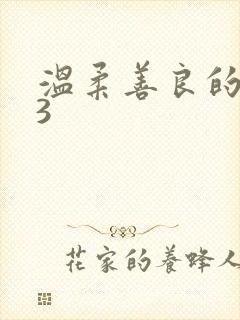 温柔善良的
3
花家的养蜂人